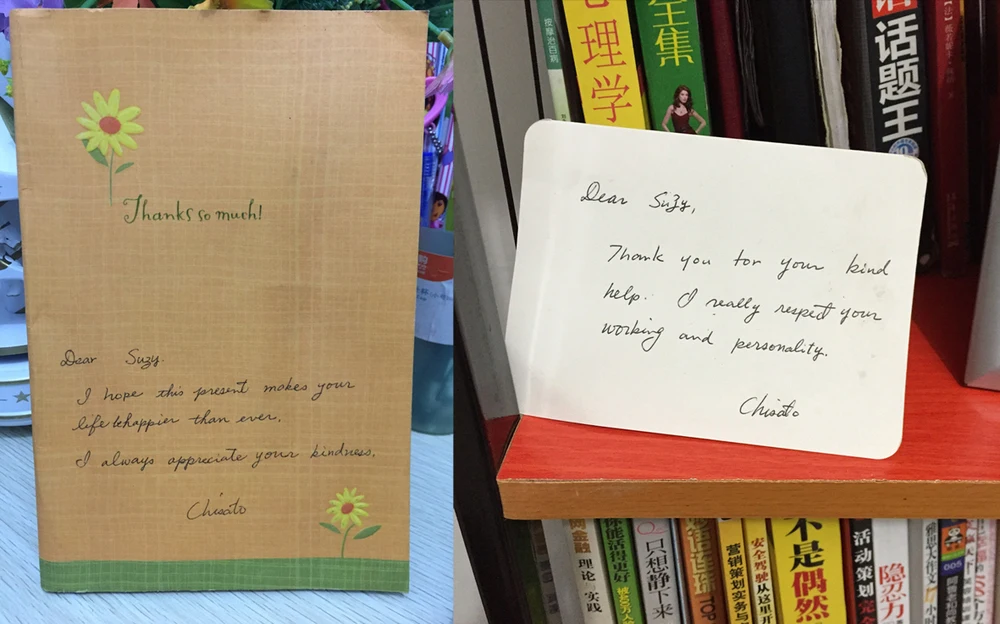 Thanks so much!
Dear Suzy.
I hope this present makes your
life behappier than ever.
I always appreciate your kindness.
Chisato
按摩治百病
心理学
全集
话题王
Dear Suzy,
Thank you for your kind
help. I really respect your
working and personality.
Chisato
理论与实践
你能活得更好
只想静下来
营销策划实务与
安全驾驶从这里开
不是偶然
活动策划完全
隐忍力
雅思大作文
005